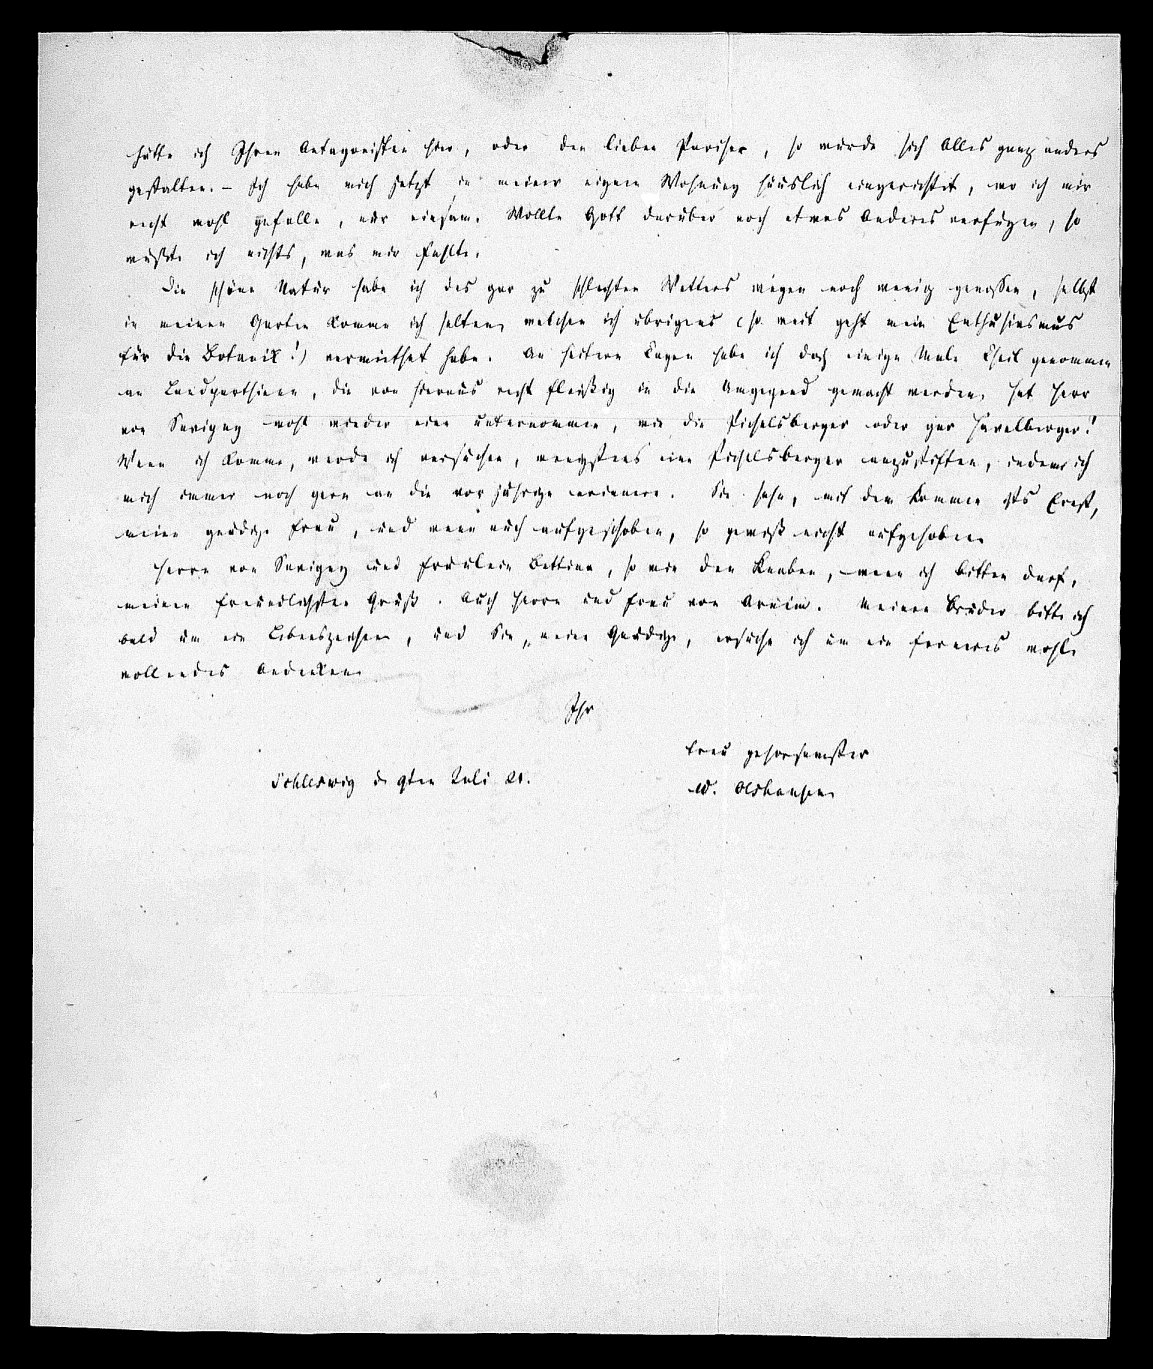 hätte ich Ihren Antagonisten hier, oder den lieben Pariser, so würde sich Alles ganz anders
gestalten. – Ich habe mich jetzt in meiner eignen Wohnung häuslich eingerichtet, wo ich mir
recht wohl gefalle, nur einsam. Wollte Gott darüber noch etwas Anderes verfügen, so
wüßte ich nichts, was mir fehlte.
Die schöne Natur habe ich des gar zu schlechten Wetters wegen noch wenig genossen, selbst
in meinen Garten komme ich selten, welchen ich übrigens (so weit geht mein Enthusiasmus
für die Botanik!) vermiethet habe. An heitern Tagen habe ich doch einige Male Theil genommen
an Landparthieen, die von hieraus recht fleißig in die Umgegend gemacht werden. Hat Herr
von Savigny wohl wieder eine unternommen, wie die Pichelsberger oder gar Havelberger!
Wenn ich komme, werde ich versuchen, wenigstens eine Pichelsberger anzustiften, indem ich
mich immer noch gern an die vorjährige erinnere. Sie sehn, mit dem Kommen ists Ernst,
meine gnädige Frau, und wenn auch aufgeschoben, so gewiß nicht aufgehoben.
Herrn von Savigny und Fräulein Bettina, so wie den Knaben, wenn ich bitten darf,
meinen freundlichsten Gruß. Auch Herrn und Frau von Arnim. Meinen Bruder bitte ich
bald um ein Lebenszeichen, und Sie, meine Gnädige, ersuche ich um ein ferneres wohl-
wollendes Andenken.
Ihr
treu gehorsamster
W. Olshausen
Schleswig d 9ten Juli 21.